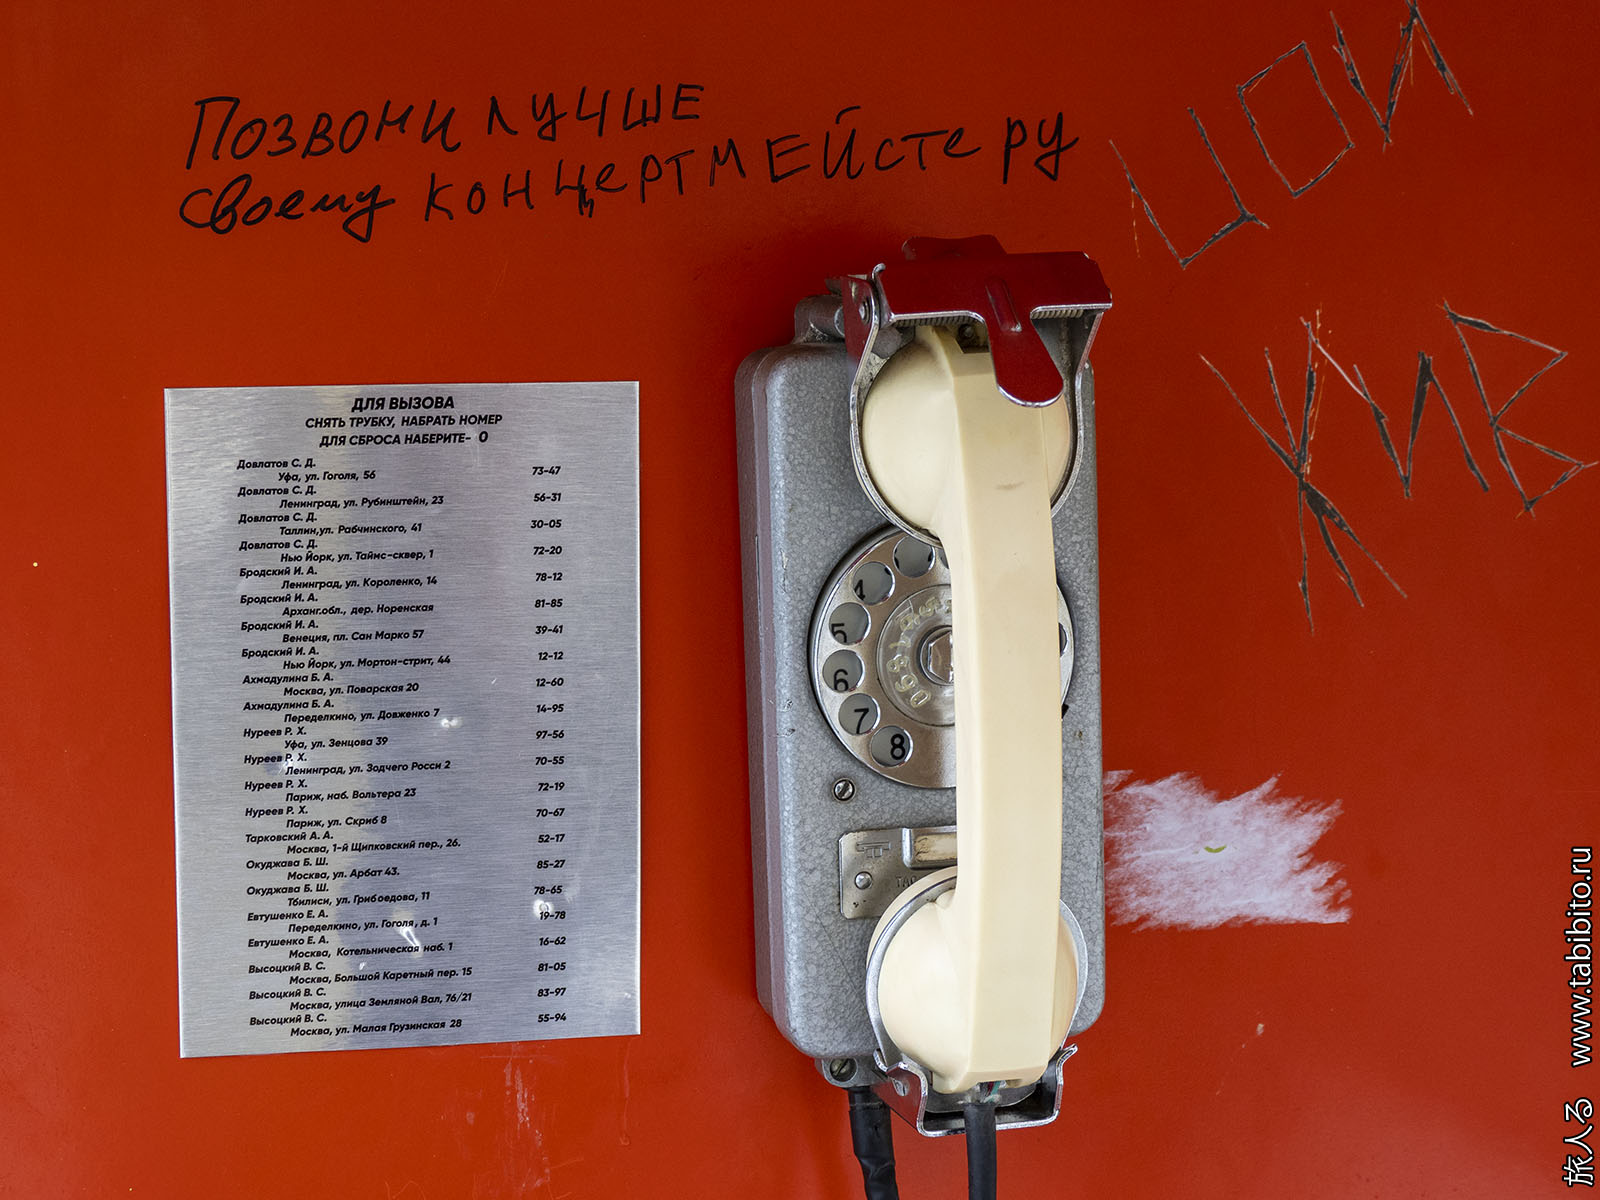 Позвони лучше
своему концертмейстеру
ЦОЙ
ЖИВ
ДЛЯ ВЫЗОВА
СНЯТЬ ТРУБКУ, НАБРАТЬ НОМЕР
ДЛЯ СБРОСА НАБЕРИТЕ- 0
Довлатов С. Д.
Уфа, ул. Гоголя, 56 73-47
Довлатов С. Д.
Ленинград, ул. Рубинштейн, 23 56-31
Довлатов С. Д.
Таллин,ул. Рабчинского, 41 30-05
Довлатов С. Д.
Нью Йорк, ул. Таймс-сквер, 1 72-20
Бродский И. А.
Ленинград, ул. Короленко, 14 78-12
Бродский И. А.
Арханг.обл., дер. Норенская 81-85
Бродский И. А.
Венеция, пл. Сан Марко 57 39-41
Бродский И. А.
Нью Йорк, ул. Мортон-стрит, 44 12-12
Ахмадулина Б. А.
Москва, ул. Поварская 20 12-60
Ахмадулина Б. А.
Переделкино, ул. Довженко 7 14-95
Нуреев Р. Х.
Уфа, ул. Зенцова 39 97-56
Нуреев Р. Х.
Ленинград, ул. Зодчего Росси 2 70-55
Нуреев Р. Х.
Париж, наб. Вольтера 23 72-19
Нуреев Р. Х.
Париж, ул. Скриб 8 70-67
Тарковский А. А.
Москва, 1-й Щипковский пер., 26. 52-17
Окуджава Б. Ш.
Москва, ул. Арбат 43. 85-27
Окуджава Б. Ш.
Тбилиси, ул. Грибоедова, 11 78-65
Евтушенко Е. А.
Переделкино, ул. Гоголя, д. 1 19-78
Евтушенко Е. А.
Москва, Котельническая наб. 1 16-62
Высоцкий В. С.
Москва, Большой Каретный пер. 15 81-05
Высоцкий В. С.
Москва, улица Земляной Вал, 76/21 83-97
Высоцкий В. С.
Москва, ул. Малая Грузинская 28 55-94
4
5
6
7
8
旅人る www.tabibito.ru